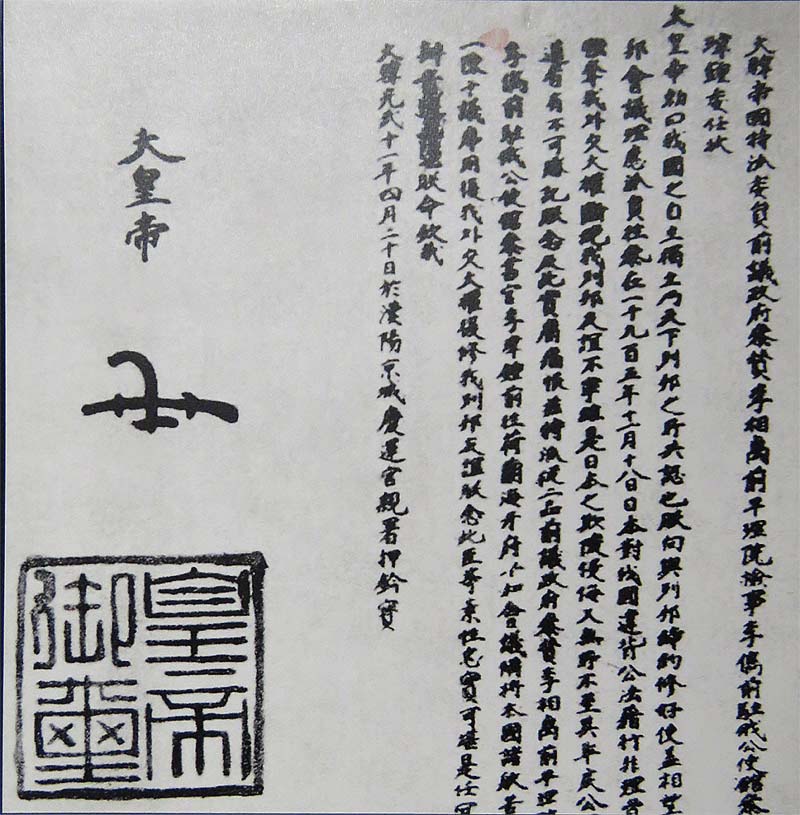 大韓帝國特派委員前議政府參贊李相卨前平理院檢事李儁前駐俄公使館參
瑋鍾委任狀
大皇帝勅曰我國之自主獨立乃天下列邦之所共認也朕向與列邦締約修好使蓋相望
邦會議理應派員往參在一千九百五年十一月十八日日本對我國違背公法肆行非理脅
奪我外交大權斷絶我列邦友誼不寧維是日本之欺凌侵侮又無所不至其乖戾公
道者有不可勝記朕念及此實屬痛恨茲特派從二品前議政府參贊李相卨前平理
李儁前駐俄公使館參書官李瑋鍾前往荷蘭海牙府平和會議備將本國諸般苦
一陳于議席用復我外交大權復修我列邦友誼朕念此臣等素性忠實可堪是任
朕命欽哉
大韓光武十一年四月二十日於漢陽京城慶運宮親署押鈐寶
大皇帝
皇帝
御璽